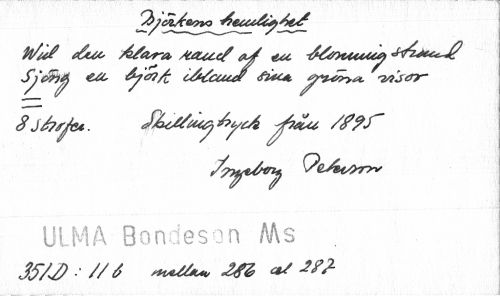 Björkens hemlighet
Wid den klara rand af en blommig strand
Sjöng en björk ibland sina gröna visor
8 strofer. Skillingtryck från 1895
Ingeborg Peterson
ULMA Bondeson Ms
351D : 11 b mellan 286 och 287